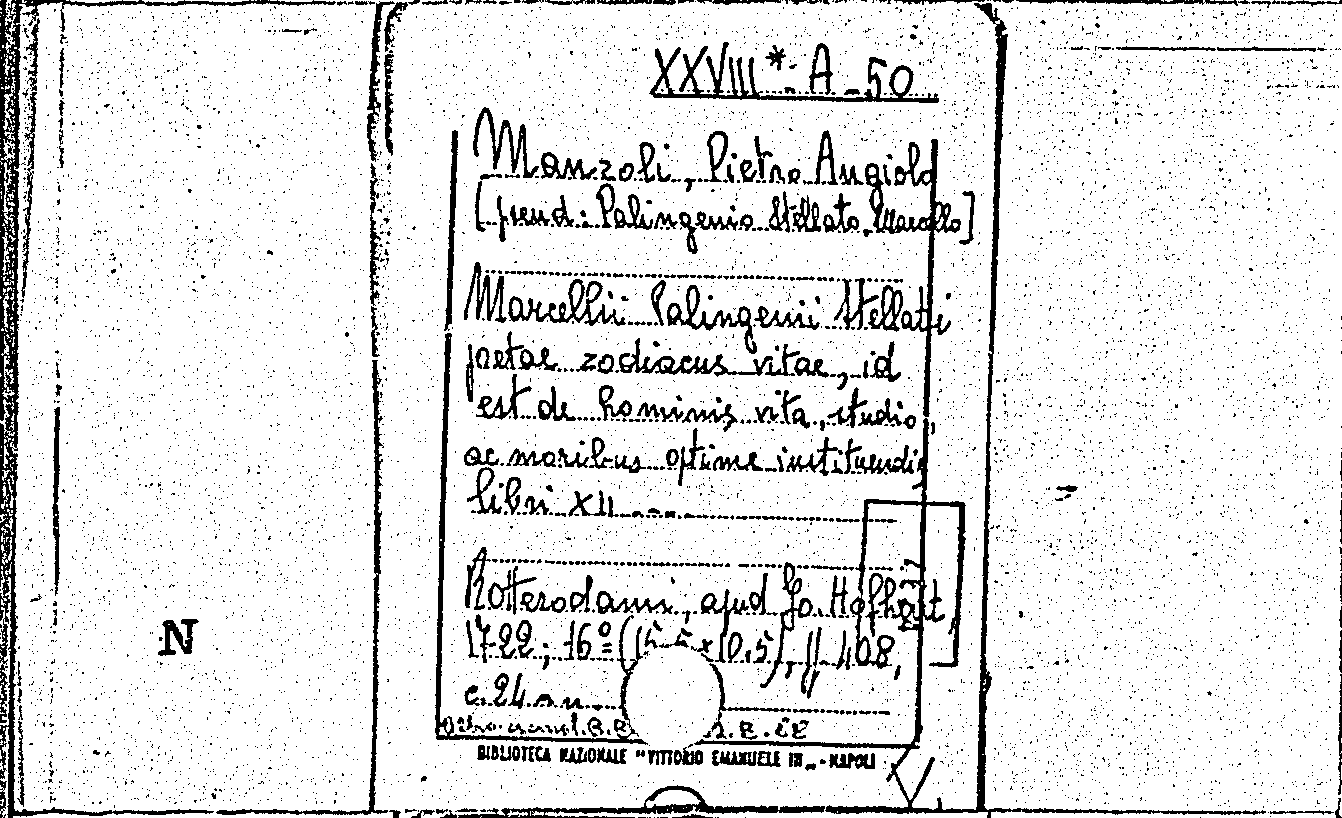 XXVIII*. A - 50
Manzoli, Pietro Angiolo
[pseud: Palingenio Stellato Marcello]
Marcellii Palingenii Stellati
poetae zodiacus vitae, id
est de hominis vita, studio,
ac moribus optime instituendis
libri XII ....
Rotterodami, apud Jo. Hofhout,
N
1722; 16º (15.5 x 10.5), pp. 408,
c. 24 n. n.
Altro esempl. B.
BIBLIOTECA NAZIONALE "VITTORIO EMANUELE III" - NAPOLI